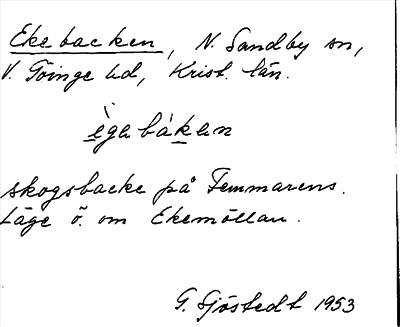 Ekebacken, N. Sandby sn,
V. Göinge hd, Krist. län.
ègabákan
skogsbacke på Femmarens.
Läge ö. om Ekemöllan.
G. Sjöstedt 1953